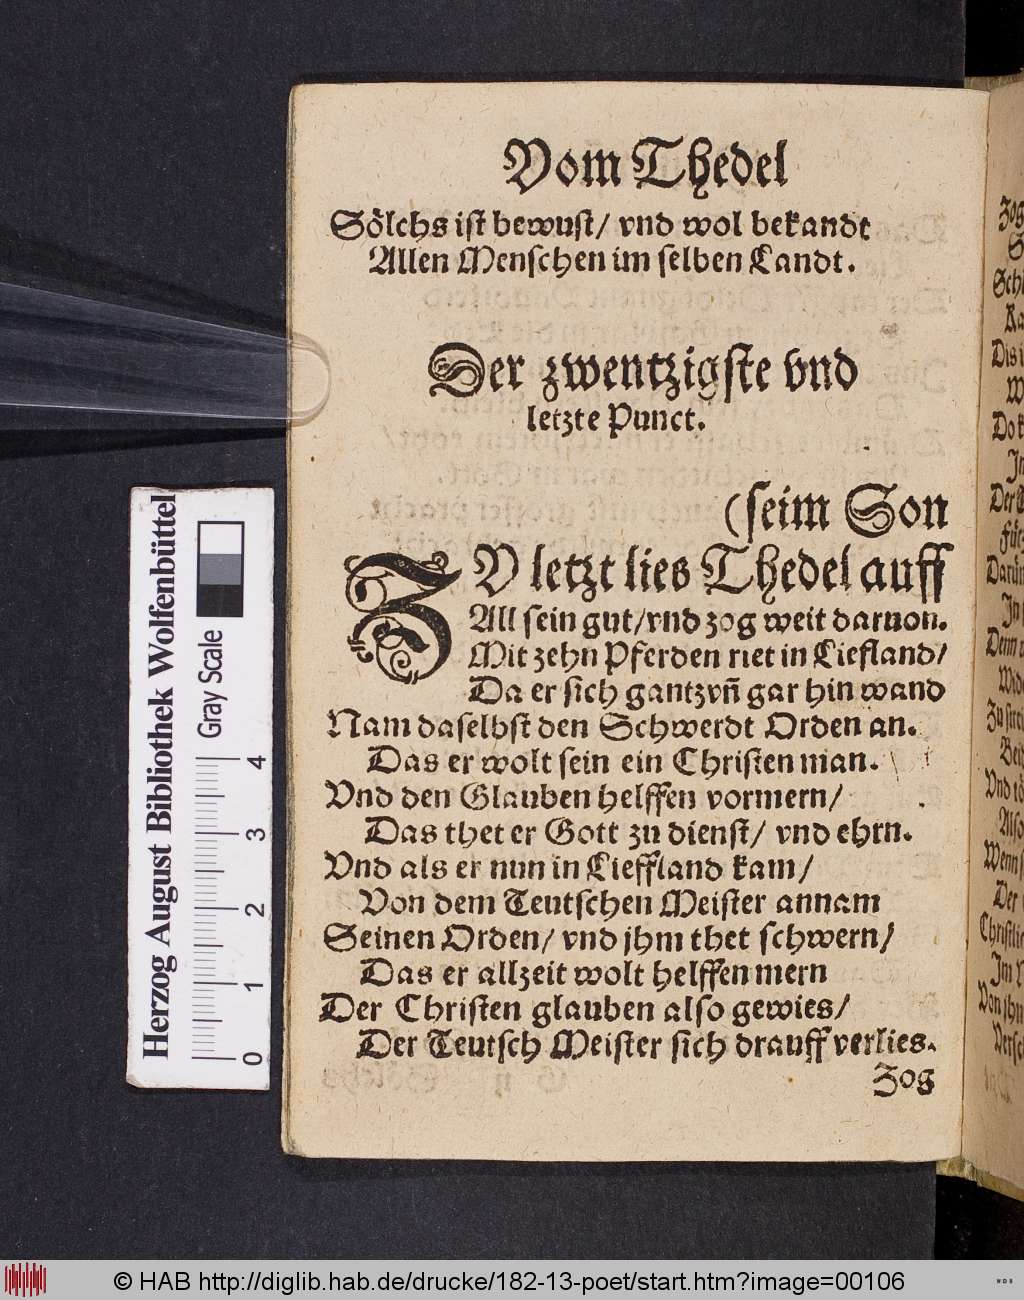 Vom Thedel
Sölchs ist bewust/ vnd wol bekandt
Allen Menschen im selben Landt.
Der zwentzigste vnd
letzte Punct.
(seim Son
ZV letzt lies Thedel auff
All sein gut/vnd zog weit daruon.
Mit zehn Pferden riet in Liefland/
Da er sich gantzvñ gar hin wand
Nam daselbst den Schwerdt Orden an.
Das er wolt sein ein Christen man.
Vnd den Glauben helffen vormern/
Das thet er Gott zu dienst/ vnd ehrn.
Vnd als er nun in Lieffland kam/
Von dem Teutschen Meister annam
Seinen Orden/ vnd jhm thet schwern/
Das er allzeit wolt helffen mern
Der Christen glauben also gewies/
Der Teutsch Meister sich drauff verlies.
Zog
Herzog August Bibliothek Wolfenbüttel
Gray Scale
0 1 2 3 4
© HAB http://diglib.hab.de/drucke/182-13-poet/start.htm?image=00106